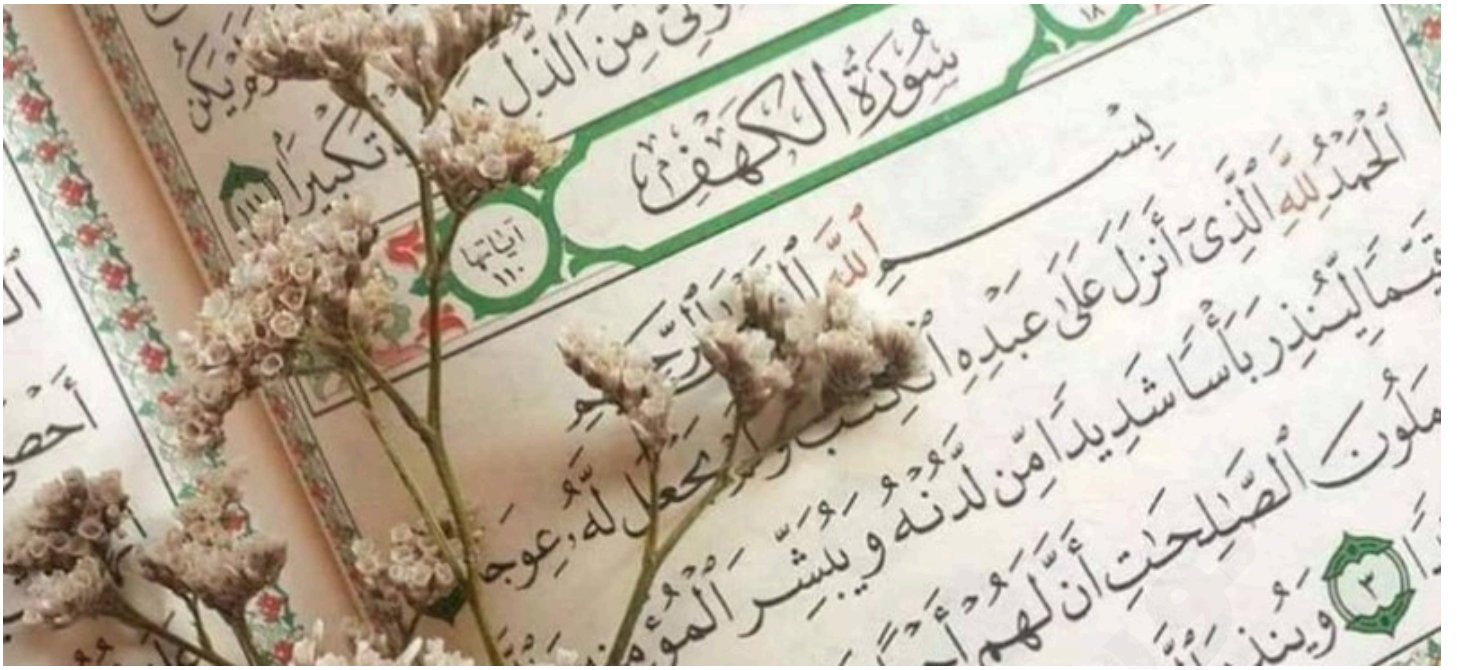 وَلِىٌّ مِّنَ ٱلذُّلِّ
تَكْبِيرًا ١١١
١٨
سُورَةُ الكَهْفِ
آياتها
١١٠
بِسْمِ ٱللَّهِ ٱلرَّحِيمِ
ٱلْحَمْدُ لِلَّهِ ٱلَّذِىٓ أَنزَلَ عَلَىٰ عَبْدِهِ ٱلْكِتَٰبَ وَلَمْ يَجْعَل لَّهُۥ عِوَجَا
قَيِّمًا لِّيُنذِرَ بَأْسًا شَدِيدًا مِّن لَّدُنْهُ وَيُبَشِّرَ ٱلْمُؤْمِنِينَ
ٱلصَّٰلِحَٰتِ أَنَّ لَهُمْ
٣ وَيُنذِرَ